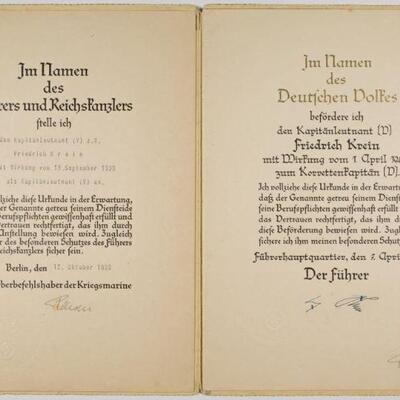 Im Namen
des
rers und Reichskanzlers
stelle ich
den Kapitänleutnant (V) z.V.
Friedrich Krein
mit Wirkung vom
September
als Kapitänleutnant (V) an.
vollziehe diese Urkunde in der Erwartung,
der Genannte getreu seinem Diensteide
Berufspflichten gewissenhaft erfüllt und
Vertrauen rechtfertigt, das ihm durch
Anstellung bewiesen wird. Zugleich
er des besonderen Schutzes des Führers
Reichskanzlers sicher sein.
Berlin, den 12. Oktober
berbefehlshaber der Kriegsmarine
Im Namen
des
Deutschen Volkes
befördere ich
den Kapitänleutnant (V)
Friedrich Krein
mit Wirkung vom 1. April
zum Korvettenkapitän (V).
Ich vollziehe diese Urkunde in der Erwartu
daß der Genannte getreu seinem Dienst
seine Berufspflichten gewissenhaft erfüllt
das Vertrauen rechtfertigt, das ihm d
diese Beförderung bewiesen wird. Zugl
sichere ich ihm meinen besonderen Schut
Führerhauptquartier, den 7. April
Der Führer